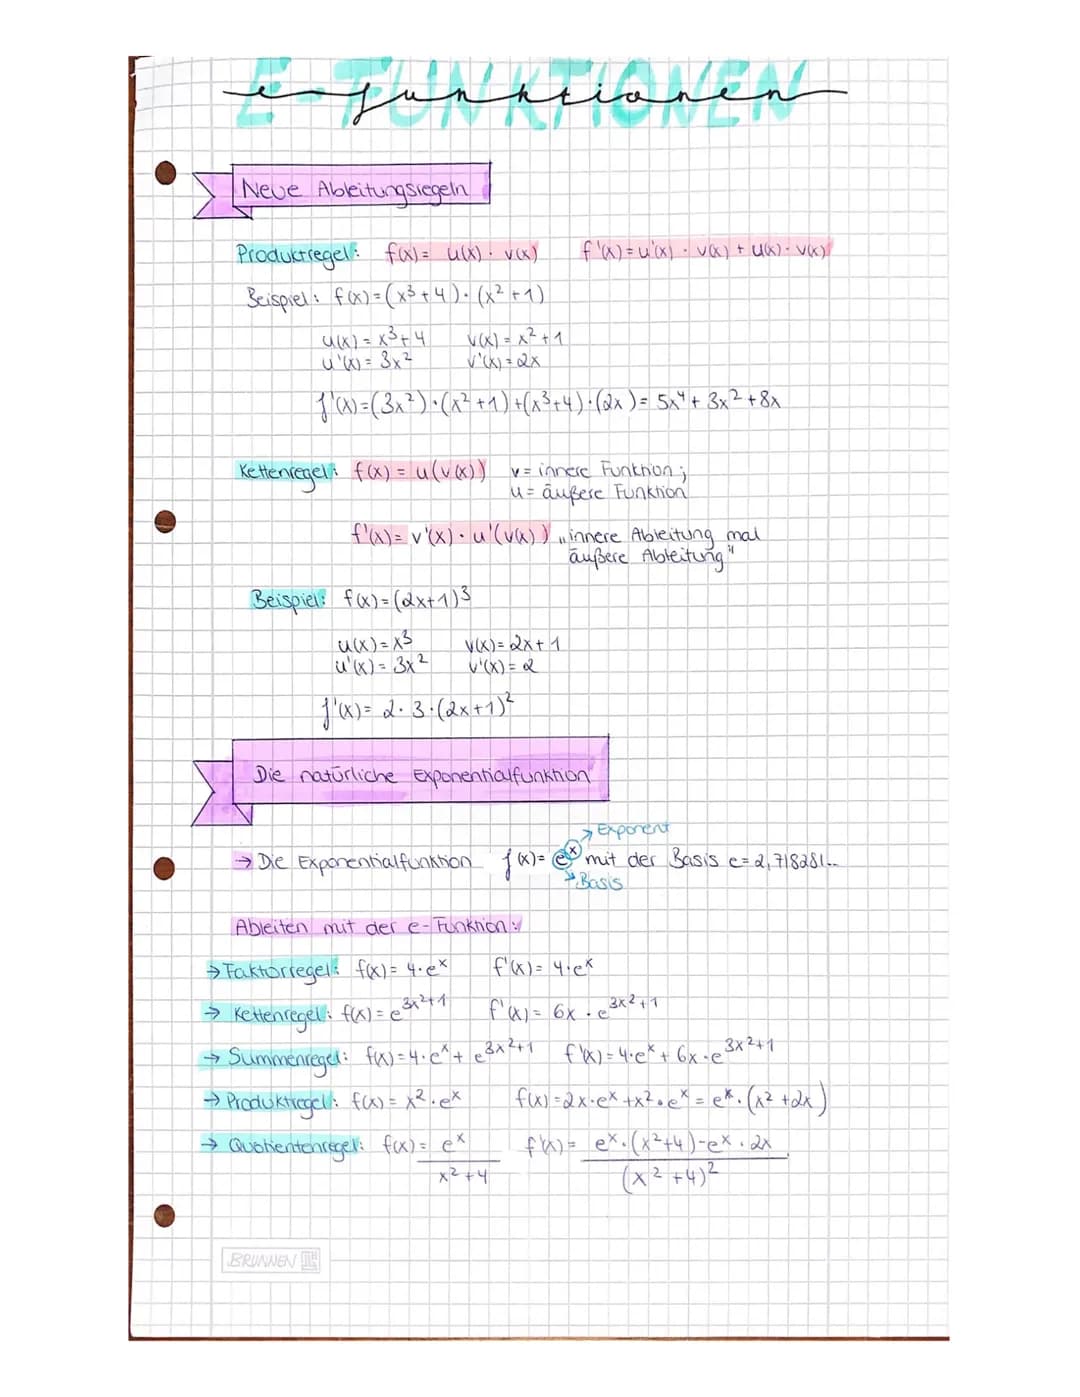 E-FUNKTIONEN
e-funktionen
Neue Ableitungsregeln
Produktregel: f(x) = u(x) · v(x) f'(x) = u'(x) · v(x) + u(x) · v(x)
Beispiel: f(x) = (x³+4) · (x²+1)
u(x) = x³+4 v(x) = x²+1
u'(x) = 3x² v'(x) = 2x
f'(x) = (3x²) · (x²+1) + (x³+4) · (2x) = 5x⁴ + 3x² + 8x
Kettenregel: f(x) = u(v(x)) v = innere Funktion;
u = äußere Funktion
f'(x) = v'(x) · u'(v(x)) „innere Ableitung mal
äußere Ableitung"
Beispiel: f(x) = (2x+1)³
u(x) = x³ v(x) = 2x+1
u'(x) = 3x² v'(x) = 2
f'(x) = 2 · 3 · (2x+1)²
Die natürliche Exponentialfunktion
→ Exponent
→ Die Exponentialfunktion f(x) = eˣ mit der Basis e = 2,718281...
→ Basis
Ableiten mit der e-Funktion:
→ Faktorregel: f(x) = 4·eˣ f'(x) = 4·eˣ
→ Kettenregel: f(x) = e^(3x²+1) f'(x) = 6x · e^(3x²+1)
→ Summenregel: f(x) = 4·eˣ + e^(3x²+1) f'(x) = 4·eˣ + 6x·e^(3x²+1)
→ Produktregel: f(x) = x²·eˣ f(x) = 2x·eˣ + x²·eˣ = eˣ·(x²+2x)
→ Quotientenregel: f(x) = eˣ f'(x) = eˣ·(x²+4) - eˣ·2x
x²+4 (x²+4)²
BRUNNEN